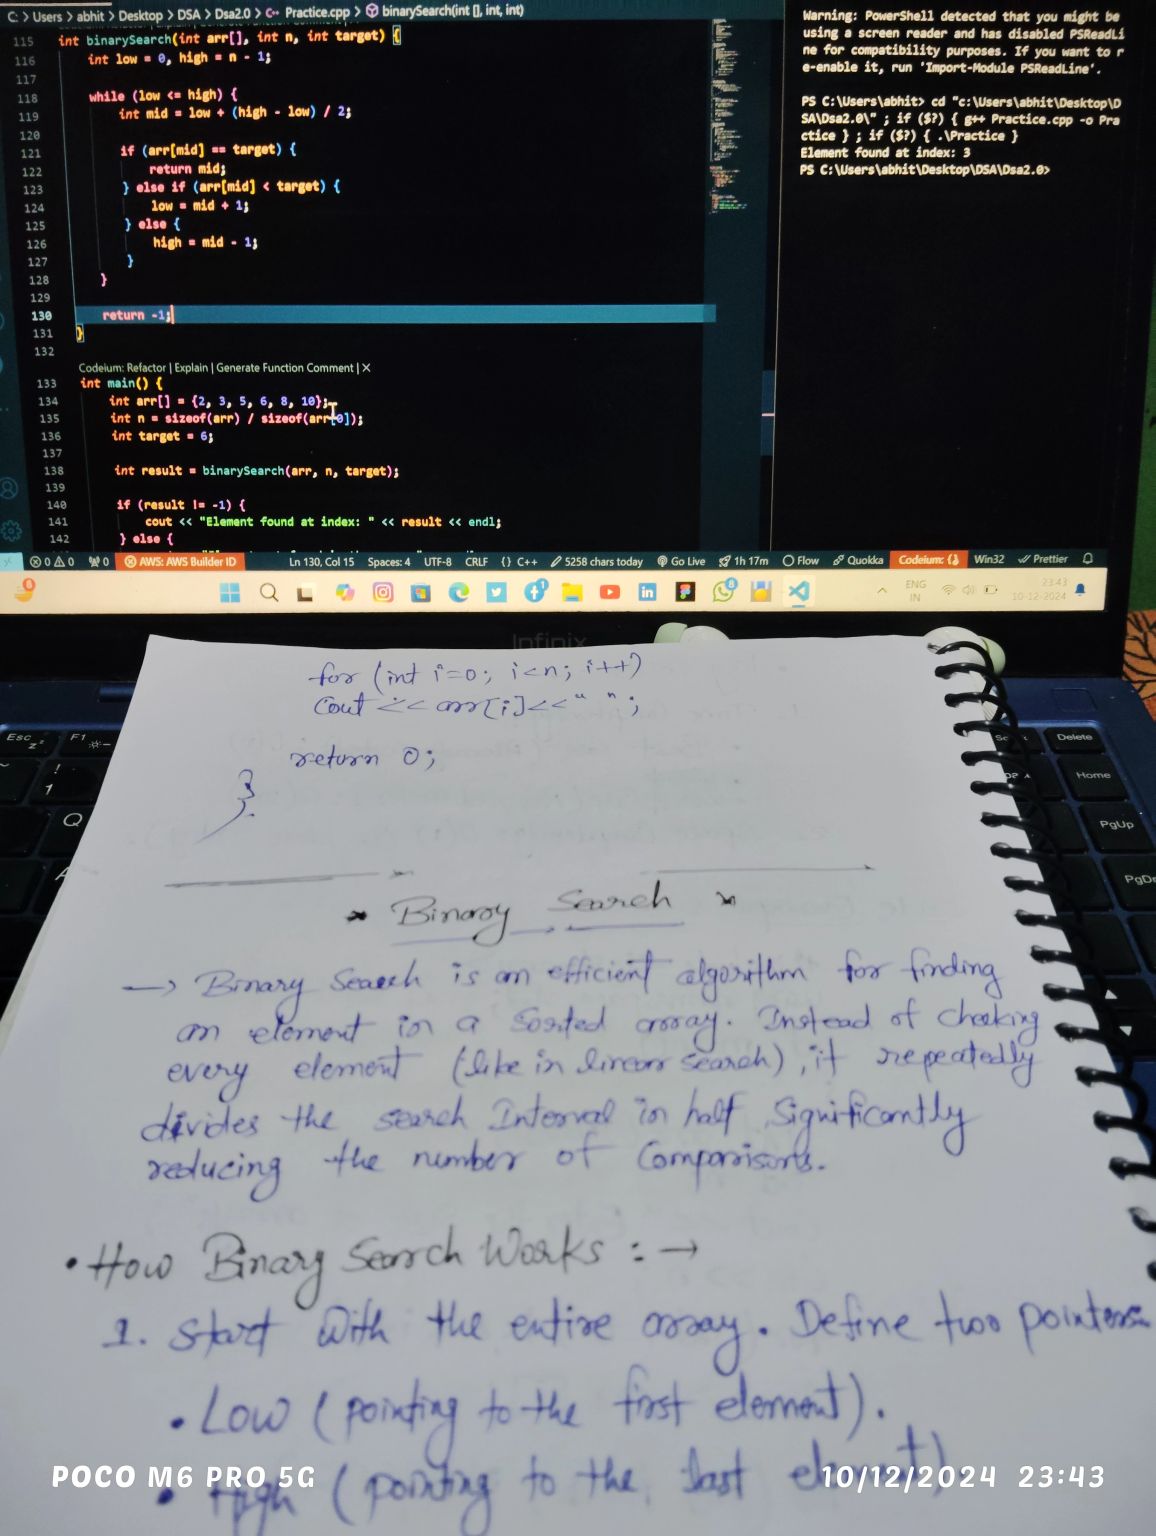 C: > Users > abhit > Desktop > DSA > Dsa2.0 > Practice.cpp > binarySearch(int [], int, int)
115 int binarySearch(int arr[], int n, int target) {
116 int low = 0, high = n - 1;
117
118 while (low <= high) {
119 int mid = low + (high - low) / 2;
120
121 if (arr[mid] == target) {
122 return mid;
123 } else if (arr[mid] < target) {
124 low = mid + 1;
125 } else {
126 high = mid - 1;
127 }
128 }
129
130 return -1;
131 }
132
Codeium: Refactor | Explain | Generate Function Comment | X
133 int main() {
134 int arr[] = {2, 3, 5, 6, 8, 10};
135 int n = sizeof(arr) / sizeof(arr[0]);
136 int target = 6;
137
138 int result = binarySearch(arr, n, target);
139
140 if (result != -1) {
141 cout << "Element found at index: " << result << endl;
142 } else {
Warning: PowerShell detected that you might be
using a screen reader and has disabled PSReadLi
ne for compatibility purposes. If you want to r
e-enable it, run 'Import-Module PSReadLine'.
PS C:\Users\abhit> cd "c:\Users\abhit\Desktop\D
SA\Dsa2.0\" ; if ($?) { g++ Practice.cpp -o Pra
ctice } ; if ($?) { .\Practice }
Element found at index: 3
PS C:\Users\abhit\Desktop\DSA\Dsa2.0>
0 0 0 AWS: AWS Builder ID Ln 130, Col 15 Spaces: 4 UTF-8 CRLF {} C++ 5258 chars today Go Live 1h 17m Flow Quokka Codeium: {} Win32 Prettier
ENG 23:43
IN 10-12-2024
Infinix
for (int i=0; i<n; i++)
cout << arr[i]<<" ";
return 0;
}
Esc F1 Delete
! 1 Home
Q PgUp
A
* Binary Search *
→ Binary Search is an efficient algorithm for finding
an element in a sorted array. Instead of checking
every element (like in linear search), it repeatedly
divides the search Interval in half, Significantly
reducing the number of Comparisons.
• How Binary Search Works : →
1. Start With the entire array. Define two pointers
• Low (pointing to the first element).
• High (pointing to the last element)
POCO M6 PRO 5G 10/12/2024 23:43